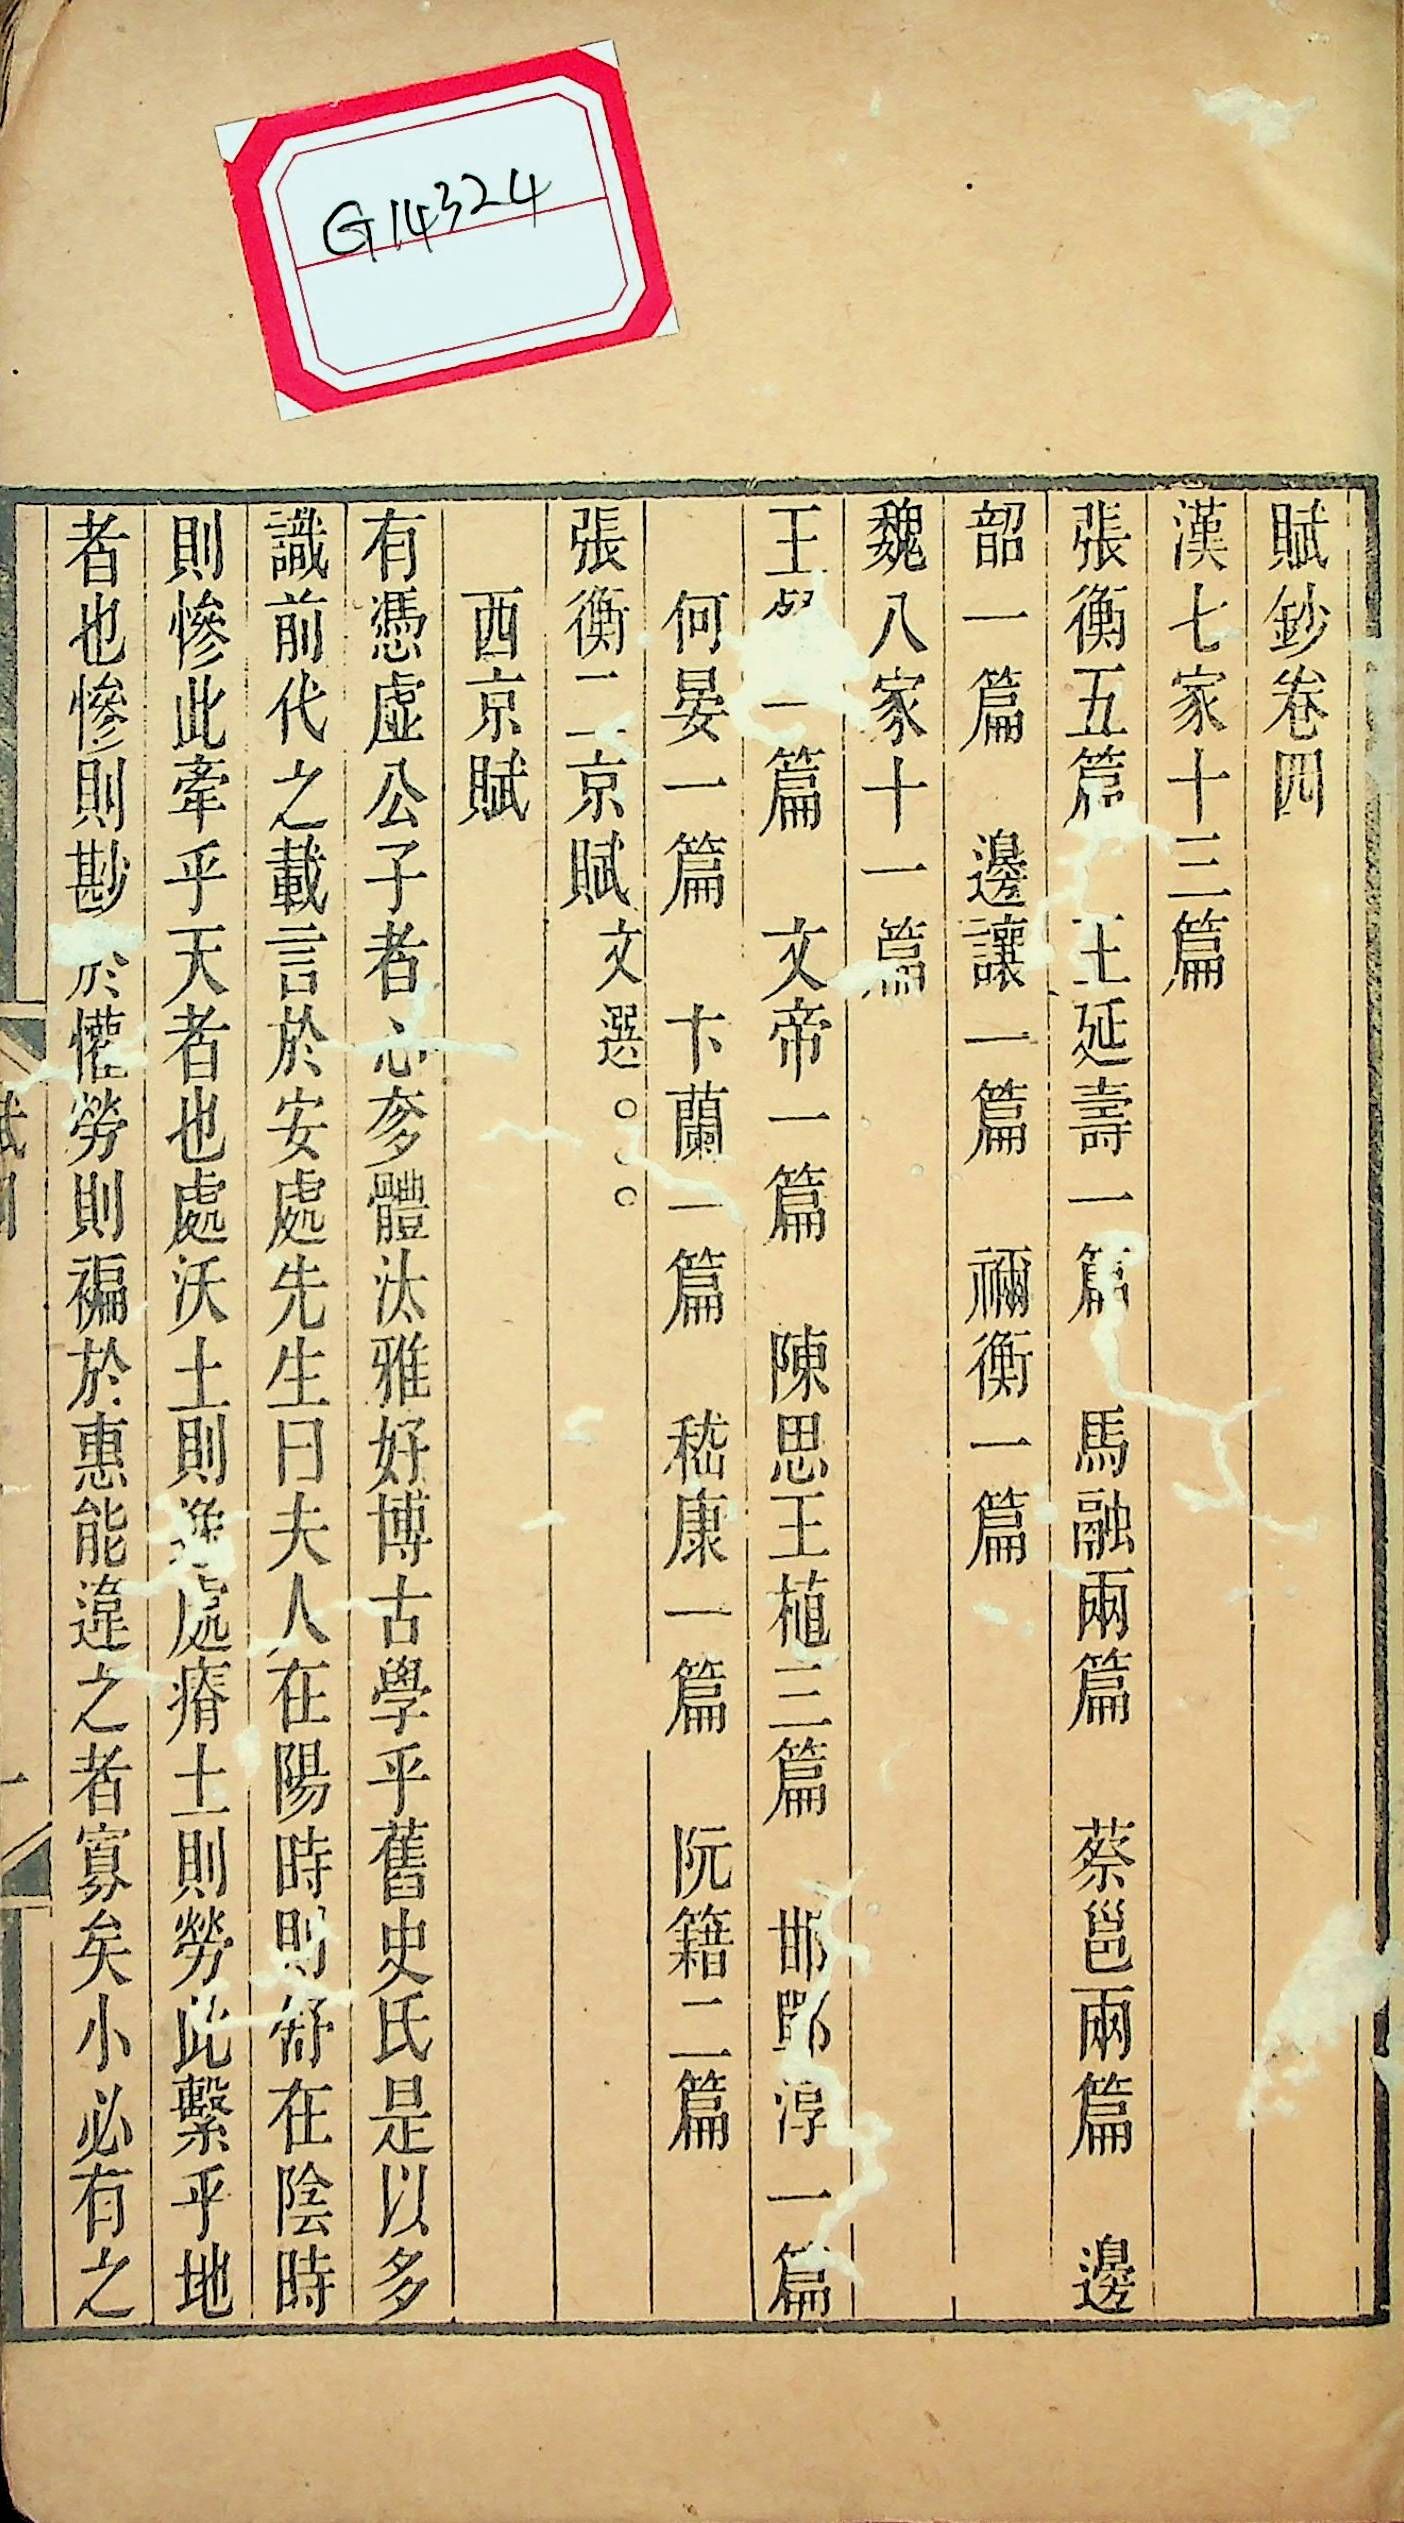 G14324
賦鈔卷四
漢七家十三篇
張衡五篇 王延壽一篇 馬融兩篇 蔡邕兩篇 邊
韶一篇 邊讓一篇 禰衡一篇
魏八家十一篇
王 一篇 文帝一篇 陳思王植三篇 邯鄲淳一篇
何晏一篇 卞蘭一篇 嵇康一篇 阮籍二篇
張衡二京賦 文選○○○
西京賦
有憑虛公子者心奓體汰雅好博古學乎舊史氏是以多
識前代之載言於安處先生曰夫人在陽時則舒在陰時
則慘此牽乎天者也處沃土則 處瘠土則勞此繫乎地
者也慘則尠於懽勞則褊於惠能違之者寡矣小必有之